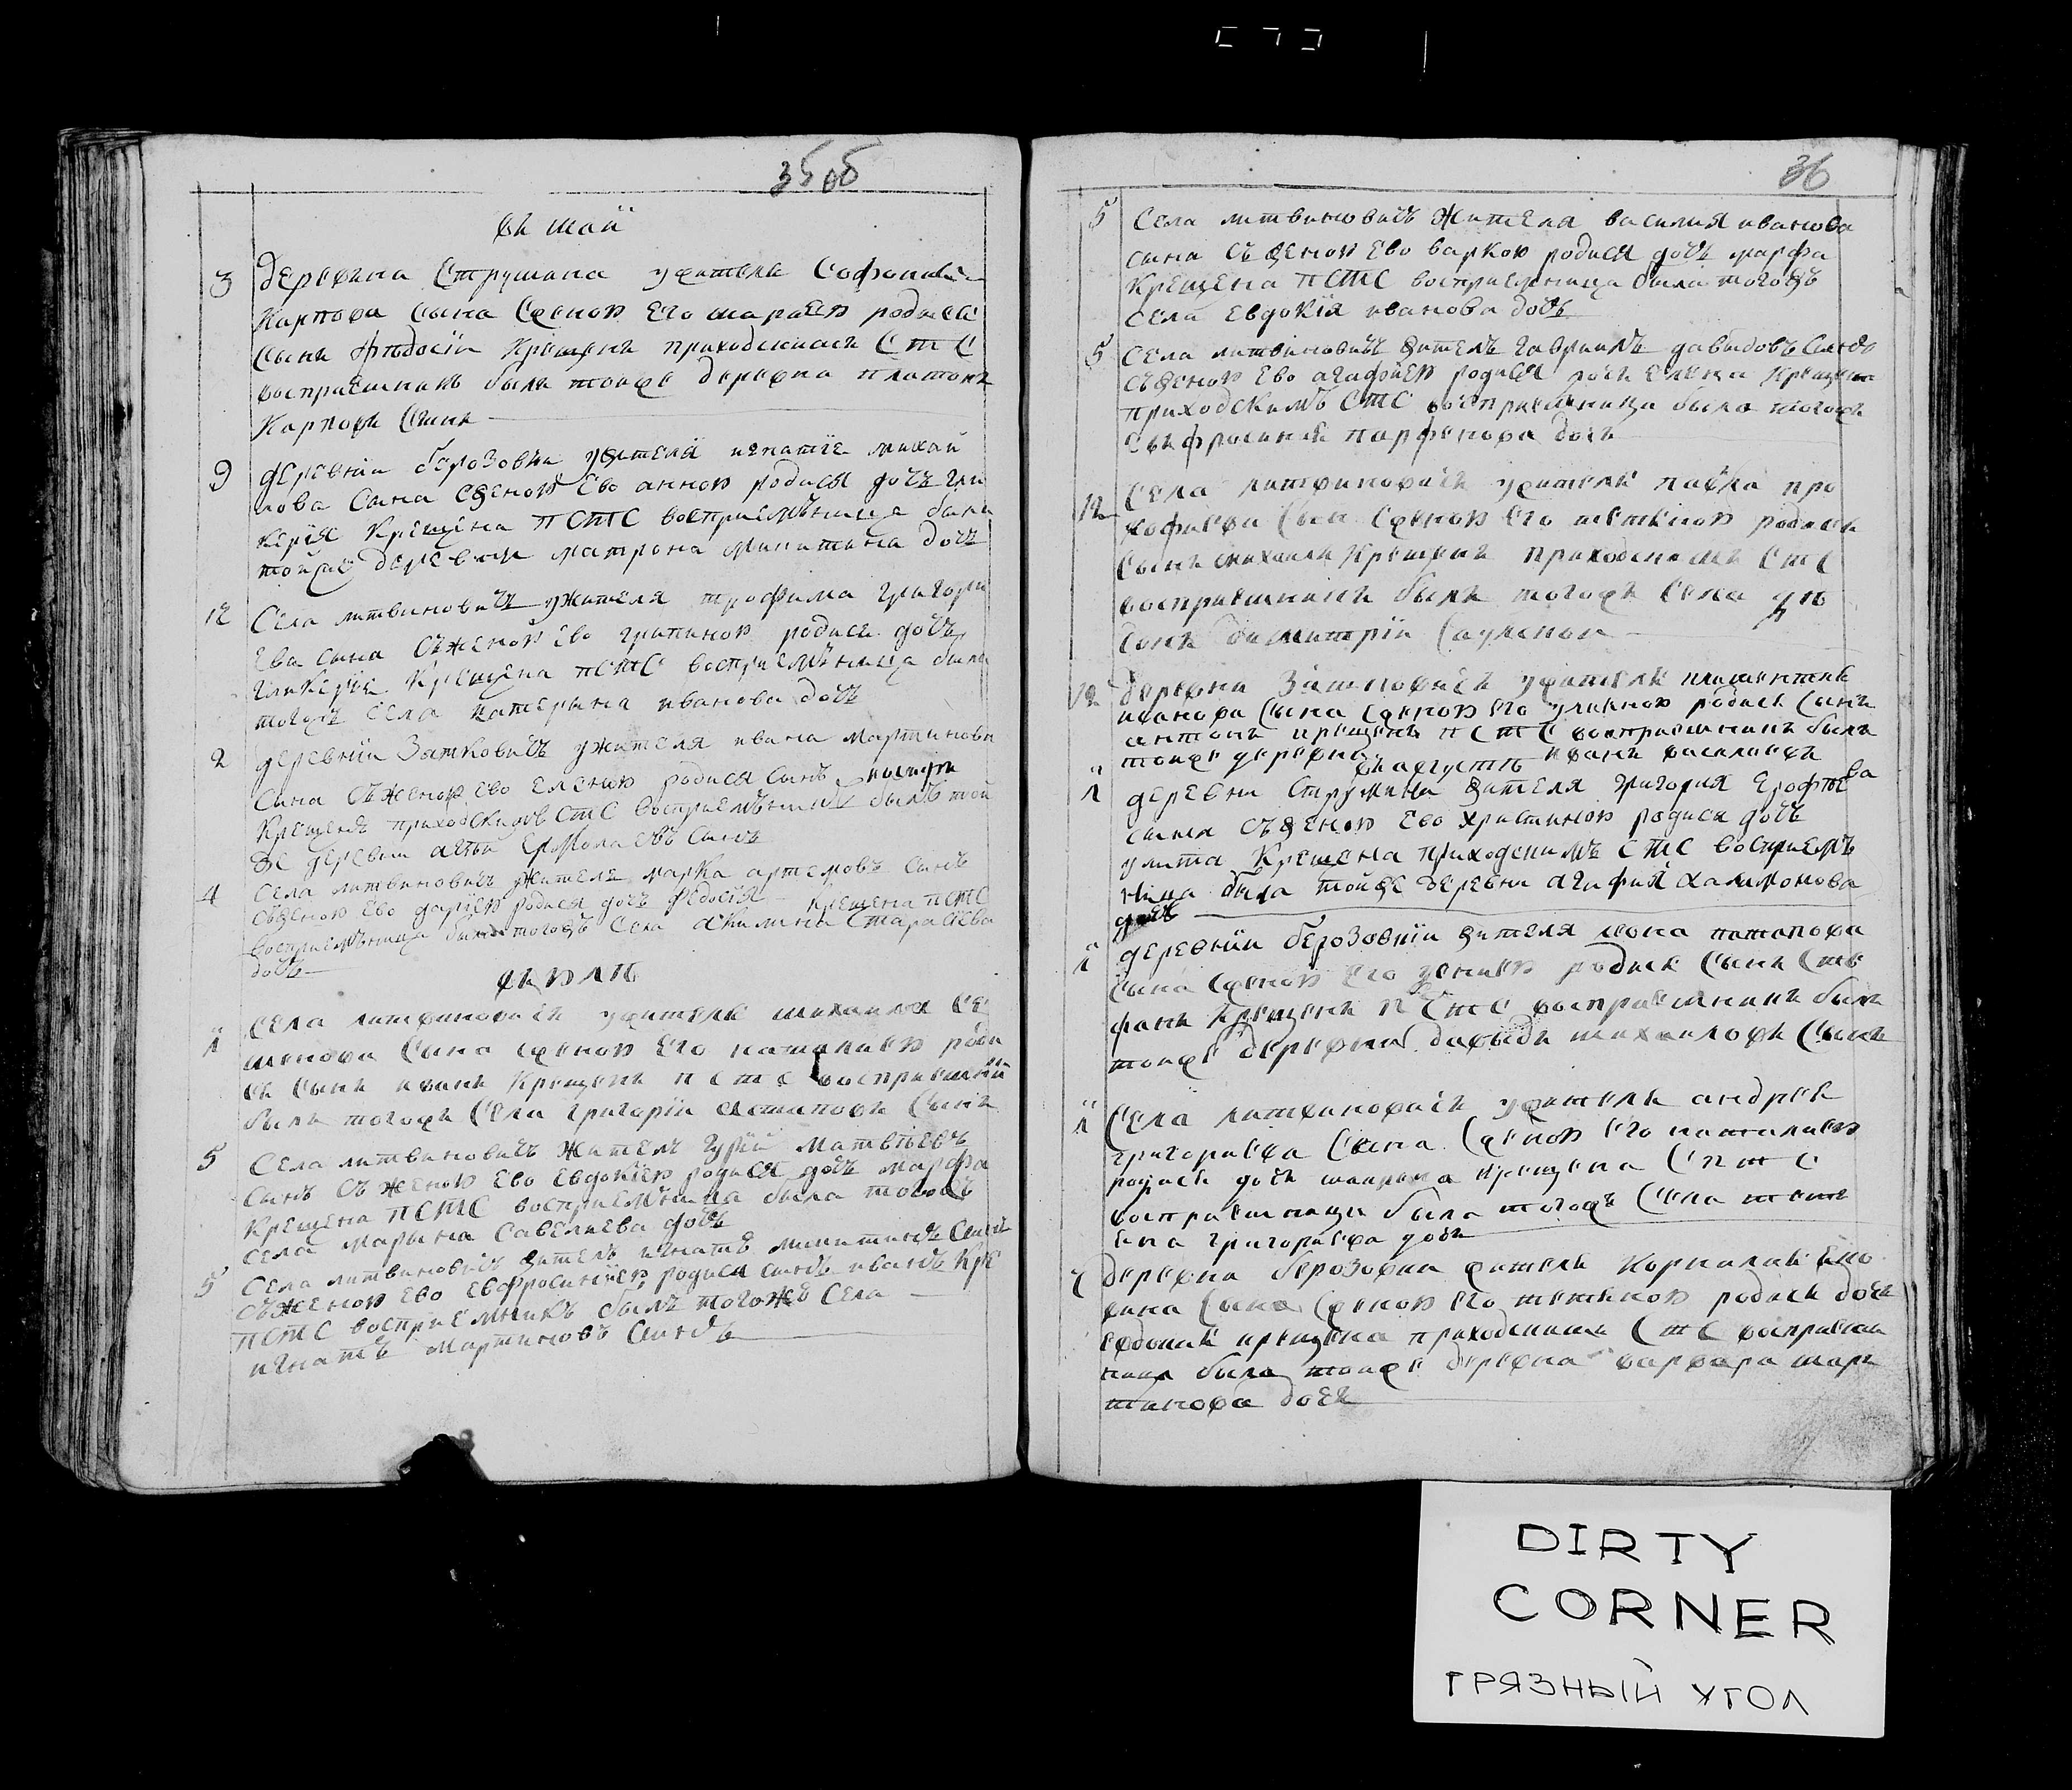 35об
въ май
3 деревни Струшина ужителя Софония
Карпова сына сженою его мариею родися
сынъ Феодосїи крещенъ приходскимъ С т С
восприемникъ былъ тоиже деревни платонъ
Карповъ сынъ
9 деревнїи берозовки ужителя игнатїе михай
лова сына сженою ево анною родися дочъ гли
керїя крещена п С т С восприемъница была
тойже деревни матрона микитина дочъ
12 Села литвиновичъ ужителя трофима григори
ева сына съженою ево грипиною родися дочъ
гликерїе крещена п С т С восприемъница была
тогожъ села катерына иванова дочъ
2 деревнїи Затковичъ ужителя ивана мартинова
сына съженою ево еленою родися сынъ
крещенъ приходскимъ С т С восприемъникъ былъ той
же деревни сынъ
4 Села литвиновичъ жителя марка артемовъ сынъ
съженою ево дарїею родися дочъ федосїя крещена п С т С
восприемъница была тогожъ села акилина Стараciева
дочъ
въ юлѣ
1 Села литвиновичъ ужителя михаила се
менова сына сженою его наталиею роди
ся сынъ иванъ крещенъ п С т С восприемни
былъ тогожъ села григорїи астаповъ сынъ
5 Села литвиновичъ жителъ гурїй матвѣевъ
сынъ съженою ево евдокїею родися дочъ марфа
крещена п С т С восприемъница была тогожъ
села марына савелиева дочъ
5 Села литвиновичъ жителъ игнатъ микитинъ сынъ
съженою ево евфросинїею родися сынъ иванъ кре
п С т С восприемникъ былъ тогожъ села
игнатъ мартиновъ сынъ
36
5 Села литвиновичъ жителя василия иванова
сына съженою ево варкою родися дочъ марфа
крещена п С т С восприемница была тогожъ
села евдокїя иванова дочъ
5 Села литвиновичъ жителъ гаврiилъ давыдовъ сынъ
съженою ево агафїею родися дочь елена крещена
приходскимъ С т С восприемница была тогожъ
евфросиния парфенова дочь
12 Села литвиновичъ ужителя павла про
кофиева сына сженою его тетяною родися
сынъ михаилъ крещенъ приходскимъ С т С
восприемникъ былъ тогожъ села
димитрїи
12 деревни Затковичъ ужителя климентия
иванова сына сженою его улияною родися сынъ
антонъ крещенъ п С т С восприемникъ былъ
тоиже деревни иванъ василиевъ
въ августѣ
1 деревни Струшина жителя григория ерофѣева
сына съженою ево христиною родися дочъ
улита крещена приходскимъ С т С восприемъ
ница была тойже деревни агафия халимонова
дочъ
1 деревнїи берозовкїи жителя иона потапова
сына сженою его ксениею родися сынъ сте
фанъ крещенъ п С т С восприемникъ былъ
тоиже деревни давыдъ михаиловъ сынъ
1 Села литвиновичъ ужителя андрея
григориева сына сженою его наталиею
родися дочь макрина крещена С п т С
восприемница была тогожъ села тетя
на григориева дочь
7 деревни берозовки жителя корнилия
сына сженою его тетяною родися дочь
евдокия крещена приходскимъ С т С восприем
ница была тоиже деревни варвара мар
тинова дочь
DIRTY
CORNER
ГРЯЗНЫЙ УГОЛ